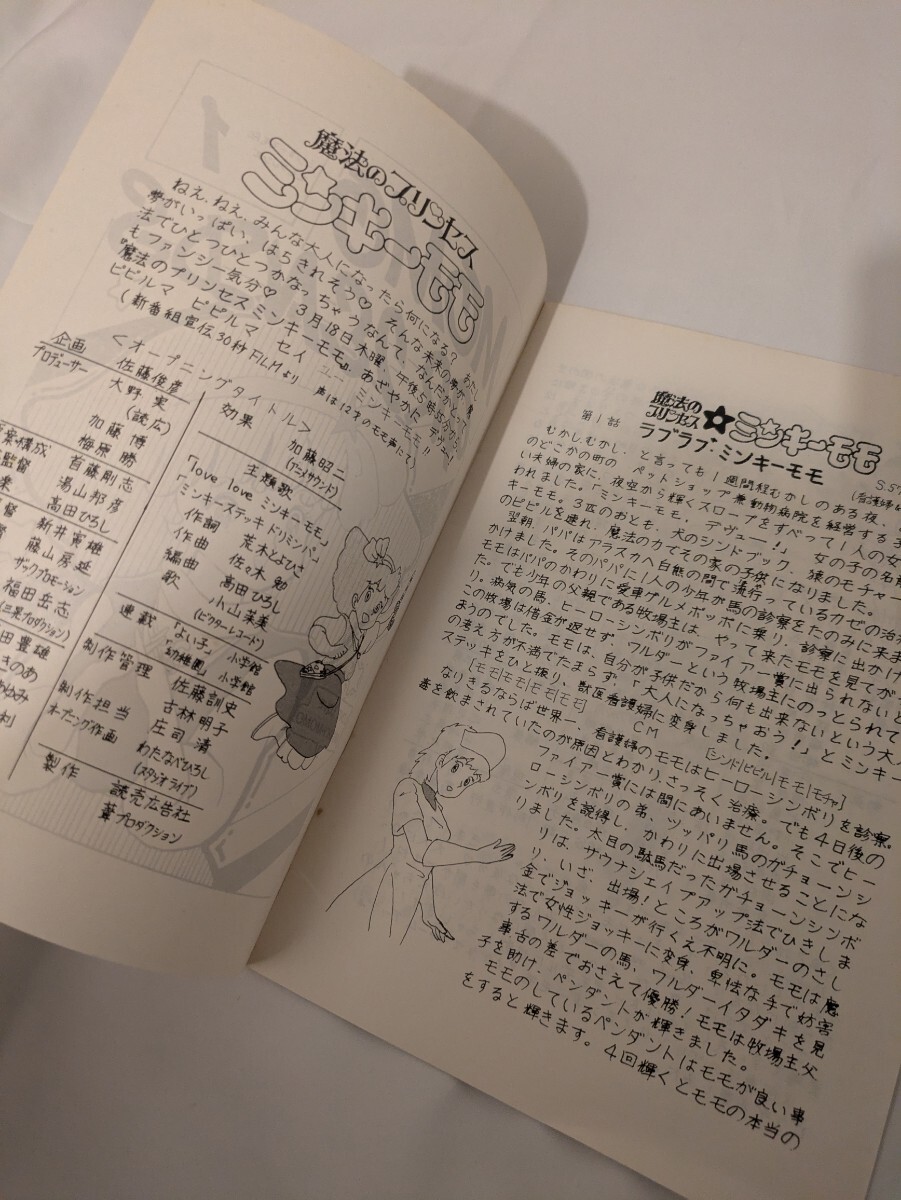 魔法のプリンセス
ミンキーモモ
ねえ、ねえ、みんな大人になったら何になる? あたし
夢がいっぱい、はちきれそう♡ そんな未来の夢が、魔
法でひとつひとつかなっちゃうなんて、なんだかとって
もファンシー気分♡ 3月18日木曜、午後5時55分から
魔法のプリンセスミンキーモモ、あざやかにデヴュー!
ピピルマ ピピルマ セイ ミンキーモモ!!
(新番組宣伝30秒FILMより 声は12才のモモ声にて)
<オープニングタイトル>
企画 佐藤俊彦
プロデューサー 大野実
(読広)
加藤博
梅原勝
首藤剛志
湯山邦彦
高田ひろし
新井寅雄
藤山房延
ザックプロモーション
福田岳志
(三晃プロダクション)
田豊雄
きのあ
あゆみ
利
効果 加藤昭二
(アニメサウンド)
主題歌
「love love ミンキーモモ」
「ミンキーステッキドリミンパ」
作詞 荒木とよひさ
作曲 佐々木勉
編曲 高田ひろし
歌 小山茉美
(ビクターレコード)
連載 「よい子」小学館
幼稚園」小学館
制作管理 佐藤訓史
古林明子
制作担当 庄司清
オープニング作画 わたなべひろし
(スタジオライブ)
製作 読売広告社
葦プロダクション
MOMO
魔法の
プリンセス
☆ミンキーモモ
第1話 ラブラブ・ミンキーモモ
S.57
(看護婦
むかし、むかし、と言っても1週間程むかしのある夜、
のどこかの町の ペットショップ兼動物病院を経営する子
い夫婦の家に、夜空から輝くスロープをすべって1人の女の
われました。「ミンキーモモ、デヴュー!」 女の子の名前
キーモモ。3匹のおとも、犬のシンドブック、猿のモチャー
のピピルを連れ、魔法の力でその家の子供になりました。
翌朝、パパはアラスカへ白熊の間で流行っているカゼの治
かけました。そのパパに1人の少年が馬の診察をたのみに来ま
モモはパパのかわりに愛車グルメポッポに乗り、診察に出かけ
た。でも少年の父親である牧場主は、やって来たモモを見てが
り。病気の馬、ヒーローシンボリがファイアー賞に出られないと
この牧場は借金が返せず、ワルダーという牧場主にのっとられて
まうのでした。モモは、自分が子供だから何も出来ないという大人
の考え方が不満でたまらず、「大人になっちゃおう!」とミンキー
ステッキをひと振り、獣医看護婦に変身しました。
[モモ|モモ|モモ|モモ] CM [シンド|ピピル|モモ|モチャ]
なりきるならば世界一、看護婦のモモはヒーローシンボリを診察。
毒を飲まされていたのが原因とわかり、さっそく治療。でも4日後の
ファイアー賞には間にあいません。そこでヒー
ローシンボリの弟、ツッパリ馬のガチョーンシ
ンボリを説得し、かわりに出場させることにな
りました。太目の駄馬だったガチョーンシンボ
リは、サウナシェイプアップ法でひきしま
り、いざ、出場!ところがワルダーのさし
金でジョッキーが行くえ不明に。モモは魔
法で女性ジョッキーに変身、卑怯な手で妨害
するワルダーの馬、ワルダーイタダキを見
事舌の差でおさえて優勝!モモは牧場主父
子を助け、ペンダントが輝きました。
モモのしているペンダントはモモが良い事
をすると輝きます。4回輝くとモモの本当の